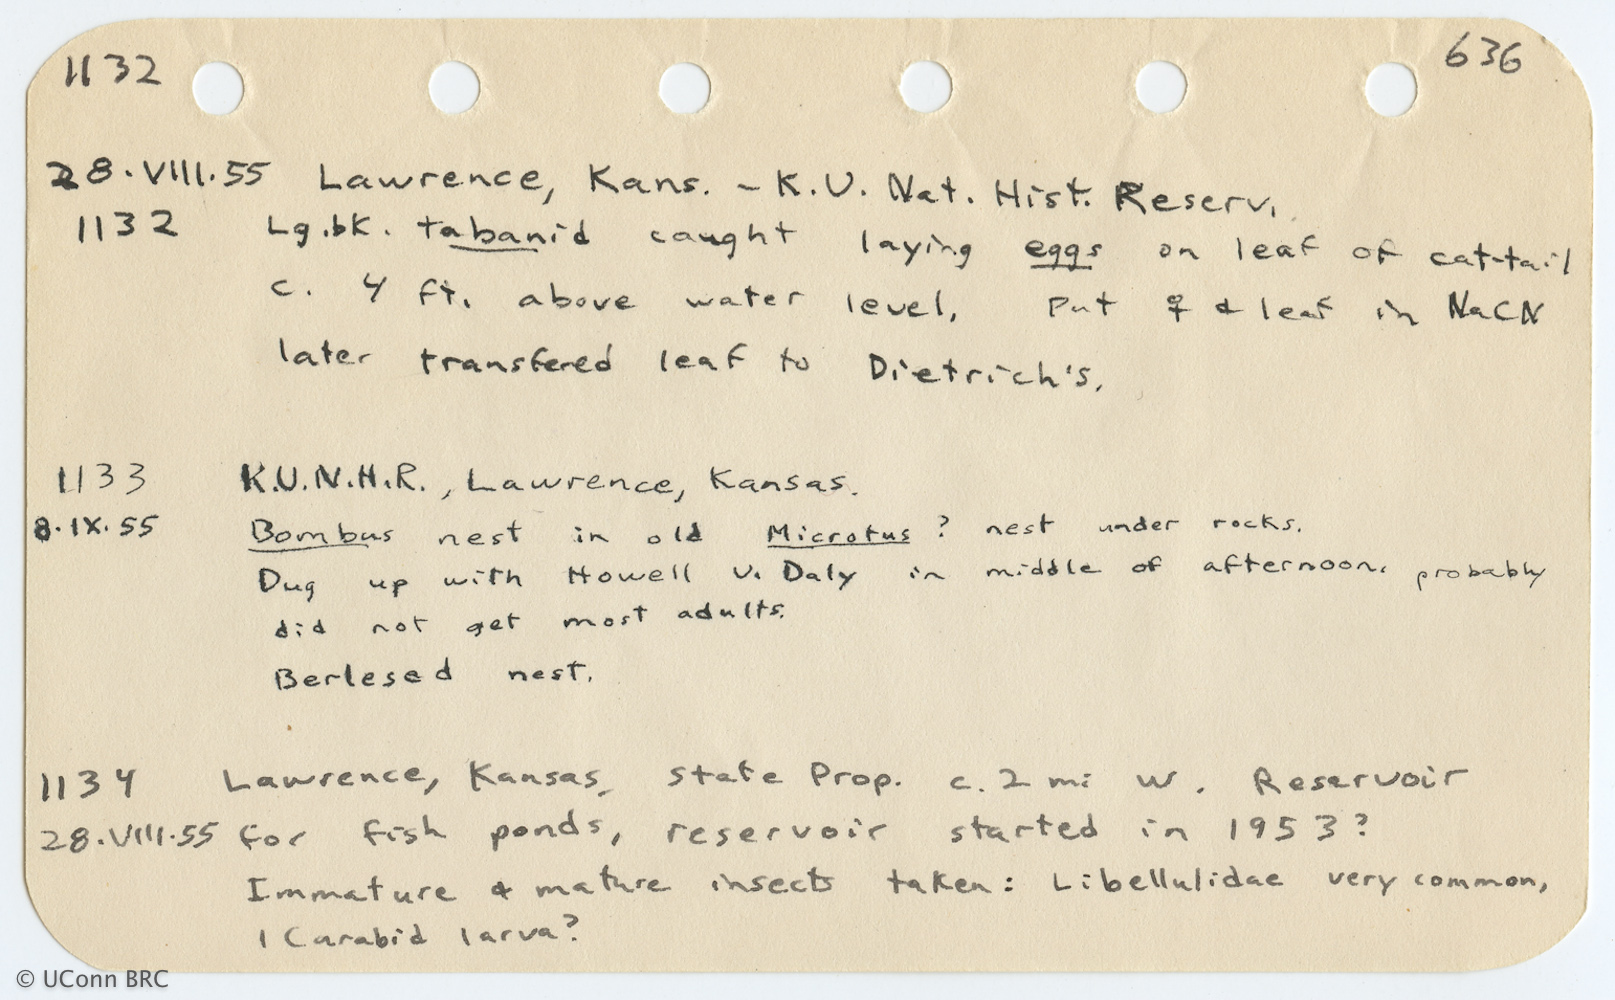 1132 636
28.VIII.55 Lawrence, Kans. - K.U. Nat. Hist. Reserv.
1132 Lg.bk. tabanid caught laying eggs on leaf of cat-tail
c. 4 ft. above water level. Put ♀ & leaf in NaCN
later transfered leaf to Dietrich's.
1133 K.U.N.H.R., Lawrence, Kansas.
8.IX.55 Bombus nest in old Microtus ? nest under rocks.
Dug up with Howell V. Daly in middle of afternoon. probably
did not get most adults.
Berlesed nest.
1134 Lawrence, Kansas, State Prop. c. 2 mi W. Reservoir
28.VIII.55 for fish ponds, reservoir started in 1953?
Immature & mature insects taken: Libellulidae very common,
1 Carabid larva?
© UConn BRC